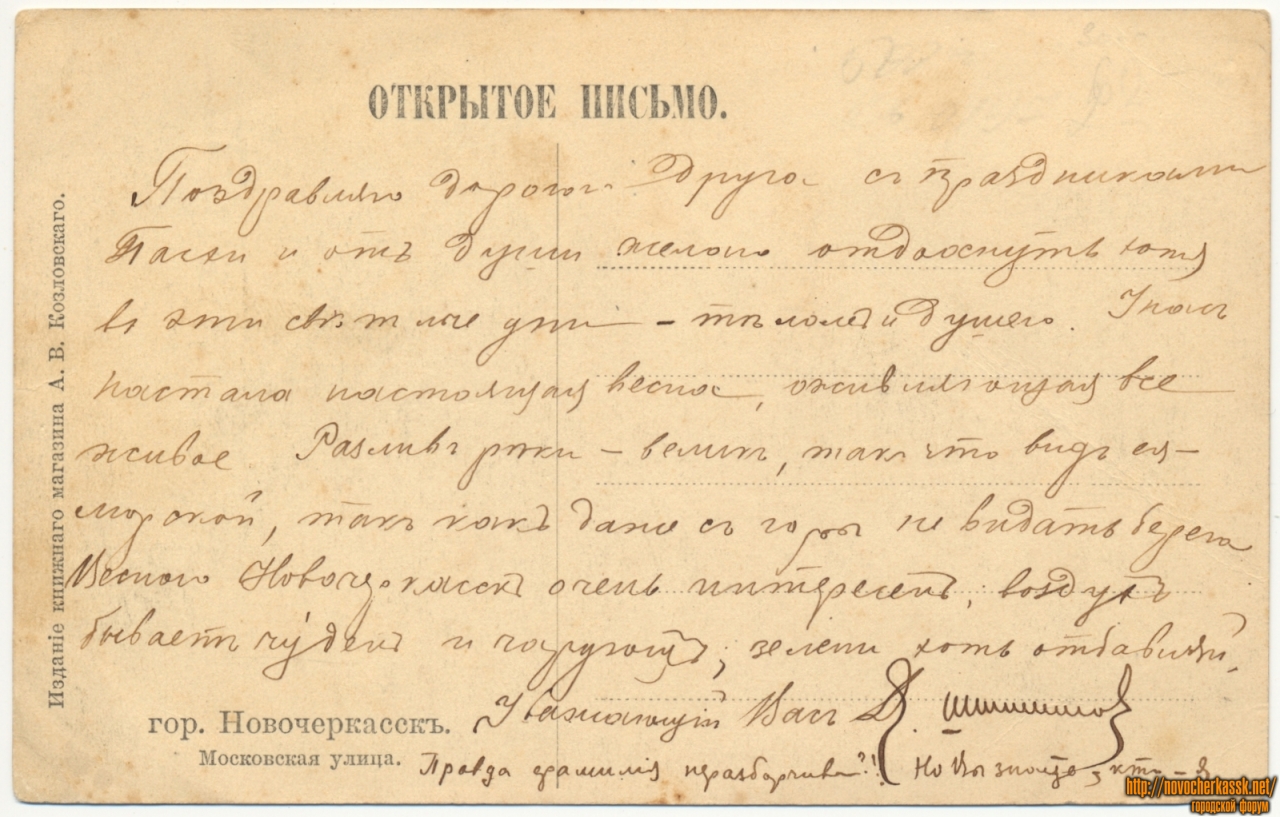 ОТКРЫТОЕ ПИСЬМО.
Поздравляю дорогого друга съ праздниками
Пасхи и отъ души желаю отдохнуть хотя
въ эти свѣтлые дни – тѣломъ и душею. У насъ
настала настоящая весна, оживляющая все
живое. Разливъ рѣки – великъ, такъ что видъ ея –
морской, такъ какъ даже съ горы не видать берега
Весною Новочеркасскъ очень интересенъ, воздухъ
бываетъ чуденъ и чарующъ, зелени хоть отбавляй.
Уважающій Васъ
Правда фамилія неразборчива?!! Но Вы знаете, кто – я
гор. Новочеркасскъ.
Московская улица.
Изданіе книжнаго магазина А. В. Козловскаго.
http://novocherkassk.net/
городской форум